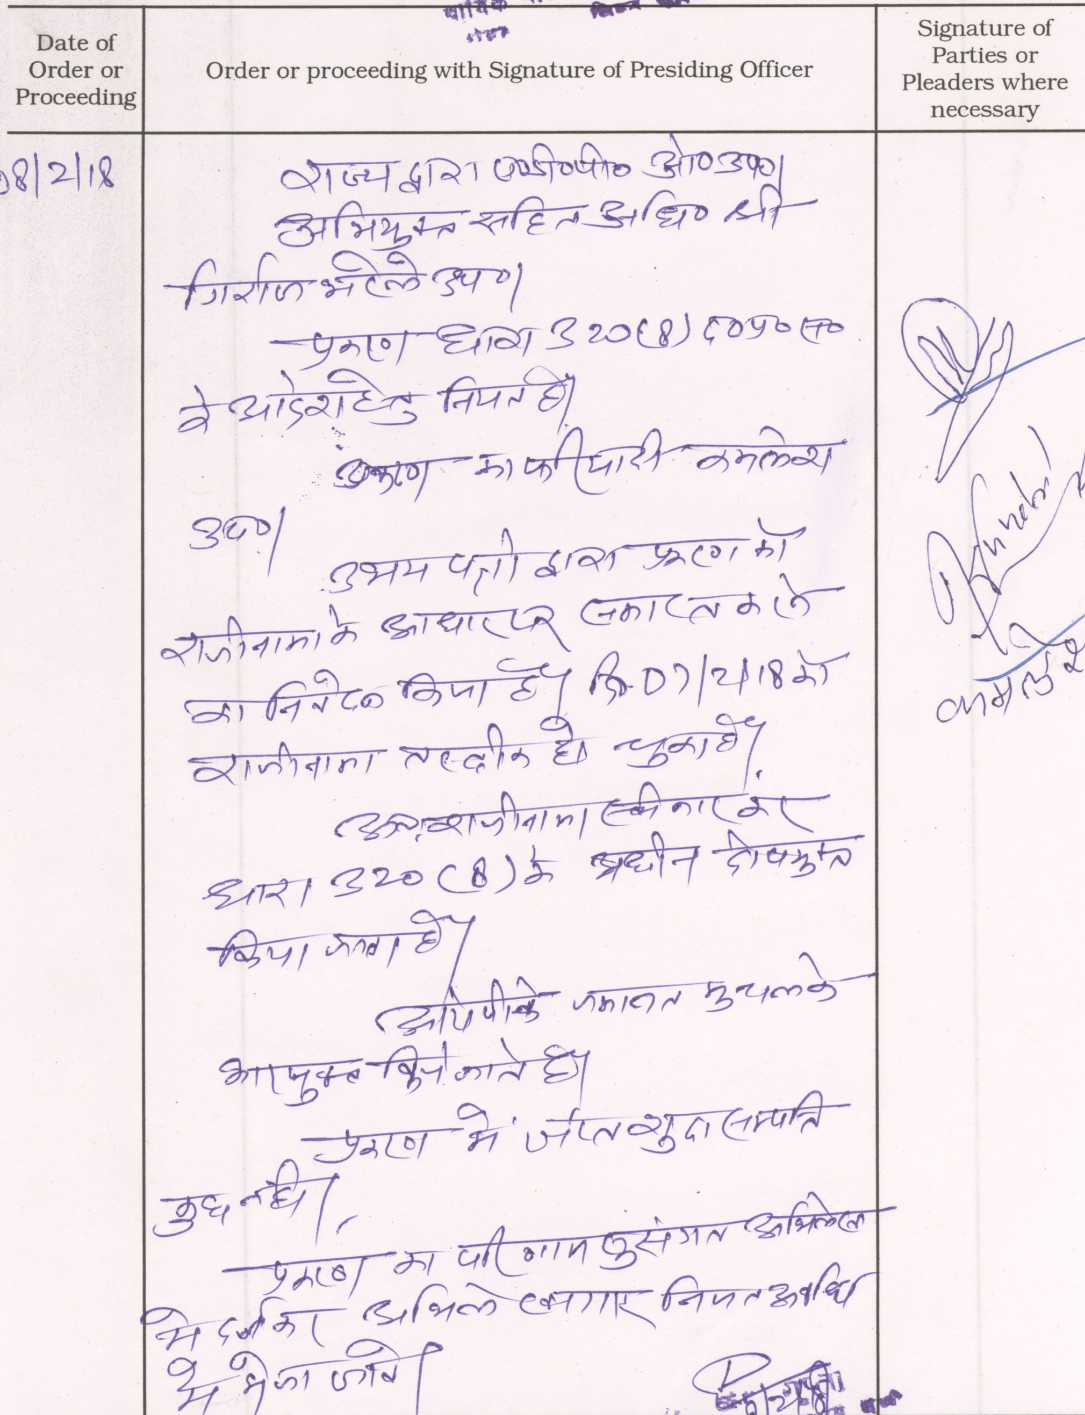 Date of
Order or
Proceeding
Order or proceeding with Signature of Presiding Officer
Signature of
Parties or
Pleaders where
necessary
08/2/18
राज्य द्वारा ए०डी०पी०ओ० उप०।
अभियुक्त सहित अधि० श्री
गिर्राज भटेले उप०।
प्रकरण धारा 320(8) द०प्र०सं०
के आदेश हेतु नियत है।
प्रकरण का फरियादी कमलेश
उप०।
उभय पक्षो द्वारा प्रकरण को
राजीनामा के आधार पर समाप्त करने
का निवेदन किया है। दि. 07/2/18 को
राजीनामा तस्दीक हो चुका है।
अतः राजीनामा स्वीकार कर
धारा 320 (8) के अधीन दोषमुक्त
किया जाता है।
आरोपी के जमानत मुचलके
भारमुक्त किये जाते है।
प्रकरण में जप्तशुदा सम्पत्ति
कुछ नही।
प्रकरण का परिणाम सुसंगत अभिलेख
मे दर्ज कर अभिलेखागार नियत अवधि
मे भेजा जावे।
कमलेश